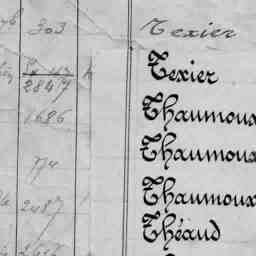 303 Texier
Texier
2847
1686 Thaumoux
Thaumoux
74
2487 Thaumoux
Théaud